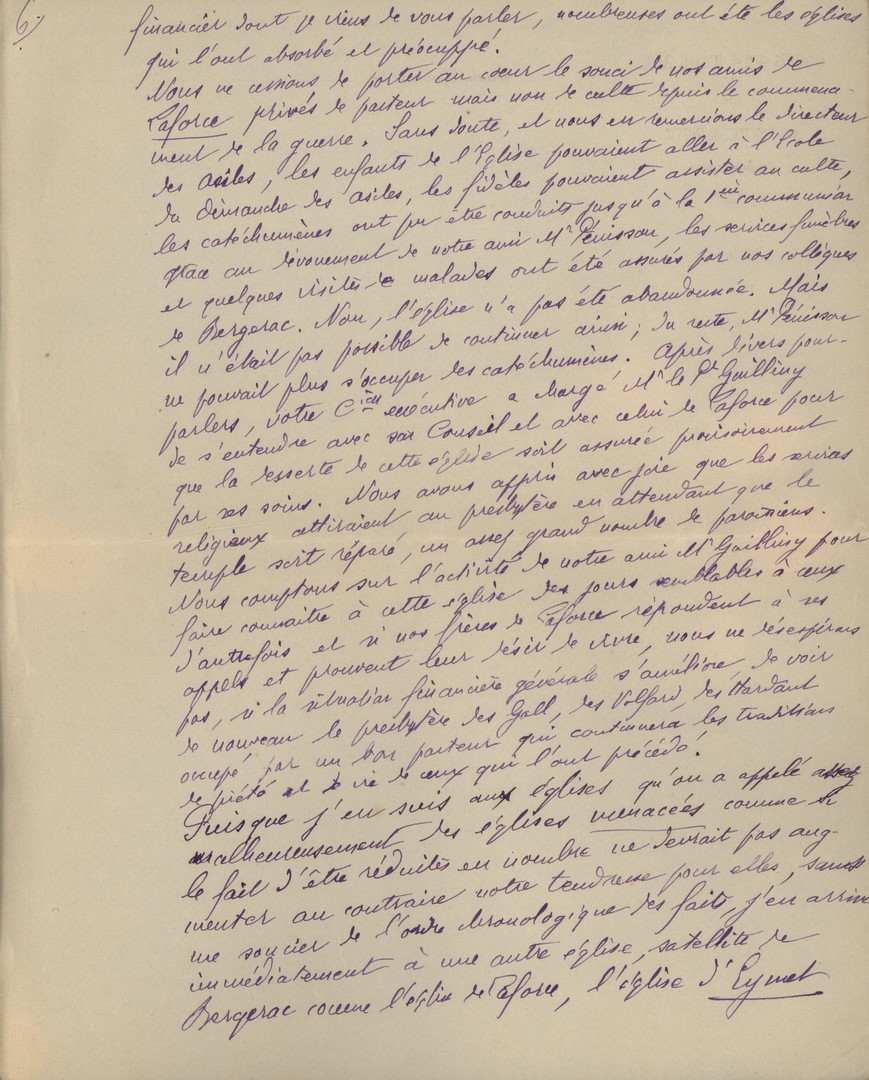 6)
financier dont je viens de vous parler, nombreuses ont été les églises
qui l'ont absorbé et préoccuppé.
Nous ne cessions de porter au coeur le souci de nos amis de
Laforce privés de pasteur mais non de culte depuis le commence-
ment de la guerre. Sans doute, et nous en remercions le directeur
des asiles, les enfants de l'Eglise pouvaient aller à l'Ecole
du dimanche des asiles, les fidèles pouvaient assister au culte,
les catéchumènes ont pu être conduits jusqu'à la 1ère communion
grâce au dévouement de notre ami Mr Pénisson, les services funèbres
et quelques visites de malades ont été assurés par nos collègues
de Bergerac. Non, l'église n'a pas été abandonnée. Mais
il n'était pas possible de continuer ainsi; du reste, Mr Pénisson
ne pouvait plus s'occuper des catéchumènes. Après divers pour-
parlers, votre Cion exécutive a chargé Mr le Pr Guilliny
de s'entendre avec son Conseil et avec celui de Laforce pour
que la desserte de cette église soit assurée provisoirement
par ses soins. Nous avons appris avec joie que les services
religieux attiraient au presbytère en attendant que le
temple soit réparé, un assez grand nombre de paroissiens.
Nous comptons sur l'activité de notre ami Mr Guilliny pour
faire connaitre à cette église des jours semblables à ceux
d'autrefois et si nos frères de Laforce répondent à ses
appels et prouvent leur désir de vivre, nous ne désespérons
pas, si la situation financière générale s'améliore, de voir
de nouveau le presbytère des Gall, des Volfard, des Hardant
occupé par un bon pasteur qui continuera les traditions
de piété et de vie de ceux qui l'ont précédé!
Puisque j'en suis aux églises qu'on a appelé assez
malheureusement des églises menacées comme si
le fait d'être réduites en nombre ne devrait pas aug-
menter au contraire notre tendresse pour elles, sans
me soucier de l'ordre chronologique des faits, j'en arrive
immédiatement à une autre église, satellite de
Bergerac comme l'église de Laforce, l'église d'Eymet